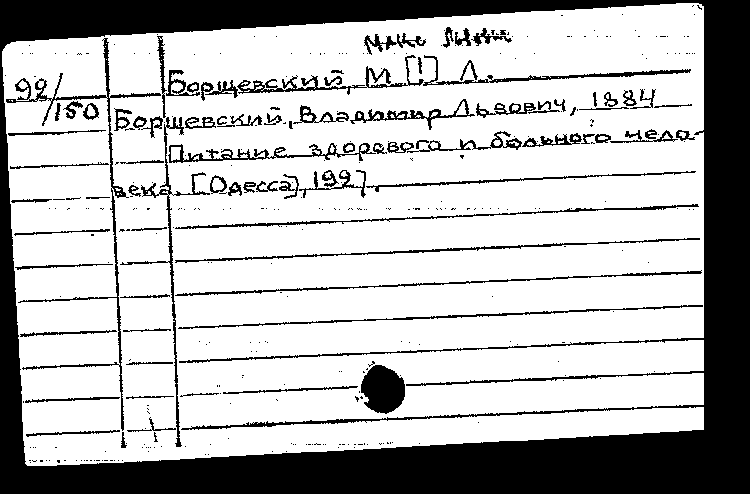 Макс Львович
92/150
Борщевский, М [!] Л.
Борщевский, Владимир Львович, 1884
Питание здорового и больного чело-
века. [Одесса], 1927.